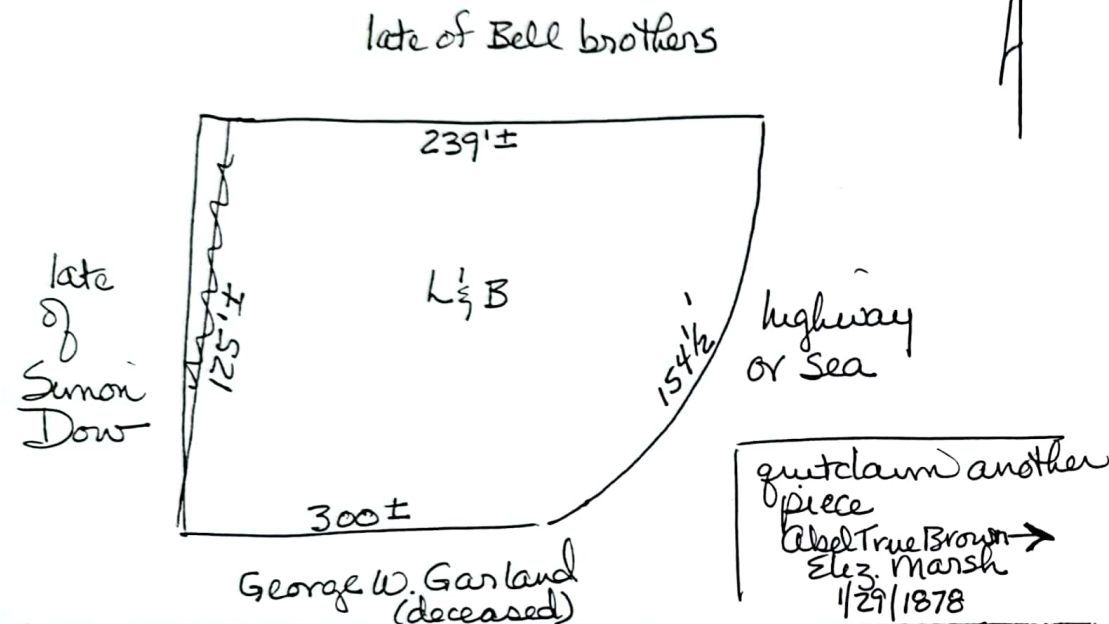 late of Bell brothers
239'±
late
of
Simon
Dow
125'±
L & B
154½'
highway
or sea
300±
George W. Garland
(deceased)
quitclaim another
piece
Abel True Brown →
Eliz. Marsh
1/29/1878